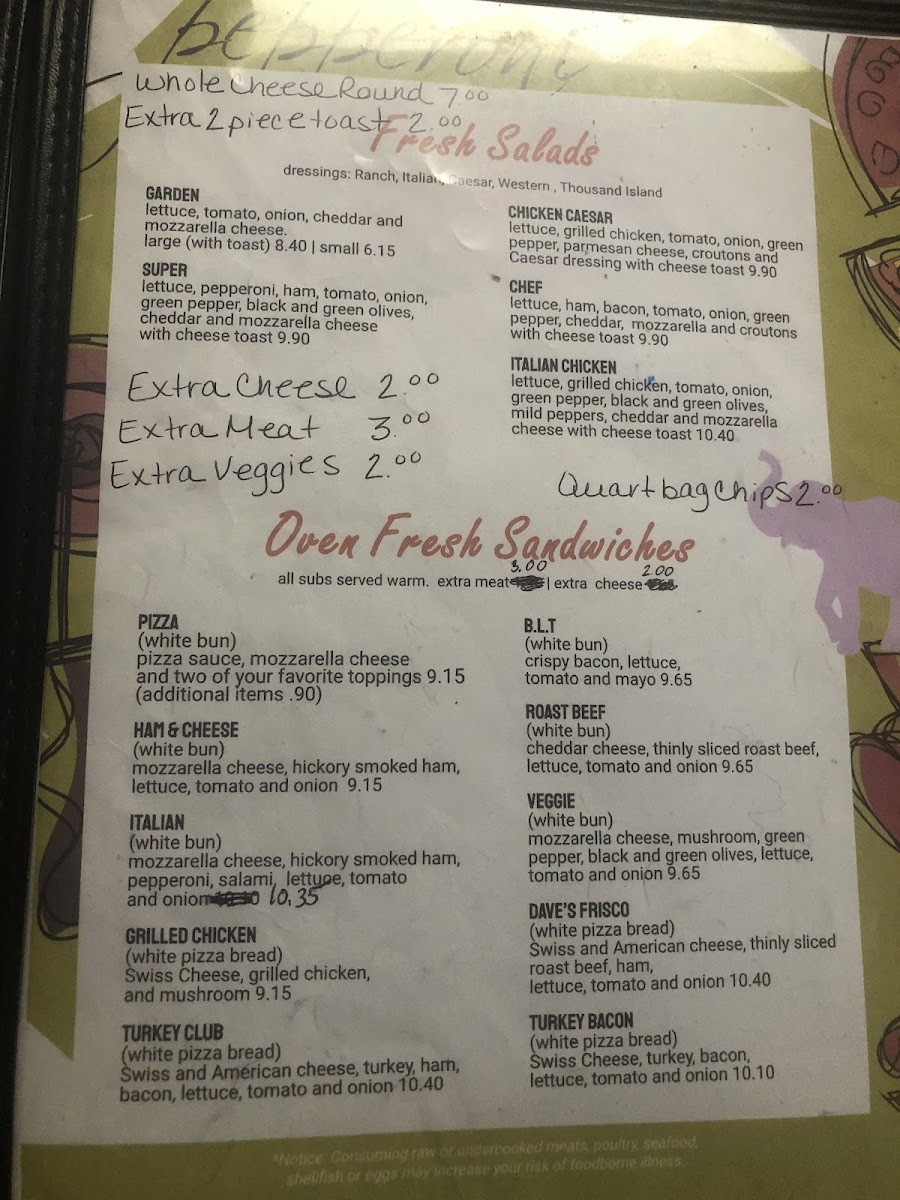 pepperoni
Whole Cheese Round 7.00
Extra 2 piece toast 2.00
Fresh Salads
dressings: Ranch, Italian, Caesar, Western , Thousand Island
GARDEN
lettuce, tomato, onion, cheddar and
mozzarella cheese.
large (with toast) 8.40 | small 6.15
SUPER
lettuce, pepperoni, ham, tomato, onion,
green pepper, black and green olives,
cheddar and mozzarella cheese
with cheese toast 9.90
Extra Cheese 2.00
Extra Meat 3.00
Extra Veggies 2.00
CHICKEN CAESAR
lettuce, grilled chicken, tomato, onion, green
pepper, parmesan cheese, croutons and
Caesar dressing with cheese toast 9.90
CHEF
lettuce, ham, bacon, tomato, onion, green
pepper, cheddar, mozzarella and croutons
with cheese toast 9.90
ITALIAN CHICKEN
lettuce, grilled chicken, tomato, onion,
green pepper, black and green olives,
mild peppers, cheddar and mozzarella
cheese with cheese toast 10.40
Quart bag chips 2.00
Oven Fresh Sandwiches
3.00 2.00
all subs served warm. extra meat | extra cheese
PIZZA
(white bun)
pizza sauce, mozzarella cheese
and two of your favorite toppings 9.15
(additional items .90)
HAM & CHEESE
(white bun)
mozzarella cheese, hickory smoked ham,
lettuce, tomato and onion 9.15
ITALIAN
(white bun)
mozzarella cheese, hickory smoked ham,
pepperoni, salami, lettuce, tomato
and onion 10.35
GRILLED CHICKEN
(white pizza bread)
Swiss Cheese, grilled chicken,
and mushroom 9.15
TURKEY CLUB
(white pizza bread)
Swiss and American cheese, turkey, ham,
bacon, lettuce, tomato and onion 10.40
B.L.T
(white bun)
crispy bacon, lettuce,
tomato and mayo 9.65
ROAST BEEF
(white bun)
cheddar cheese, thinly sliced roast beef,
lettuce, tomato and onion 9.65
VEGGIE
(white bun)
mozzarella cheese, mushroom, green
pepper, black and green olives, lettuce,
tomato and onion 9.65
DAVE'S FRISCO
(white pizza bread)
Swiss and American cheese, thinly sliced
roast beef, ham,
lettuce, tomato and onion 10.40
TURKEY BACON
(white pizza bread)
Swiss Cheese, turkey, bacon,
lettuce, tomato and onion 10.10
*Notice: Consuming raw or undercooked meats, poultry, seafood,
shellfish or eggs may increase your risk of foodborne illness.